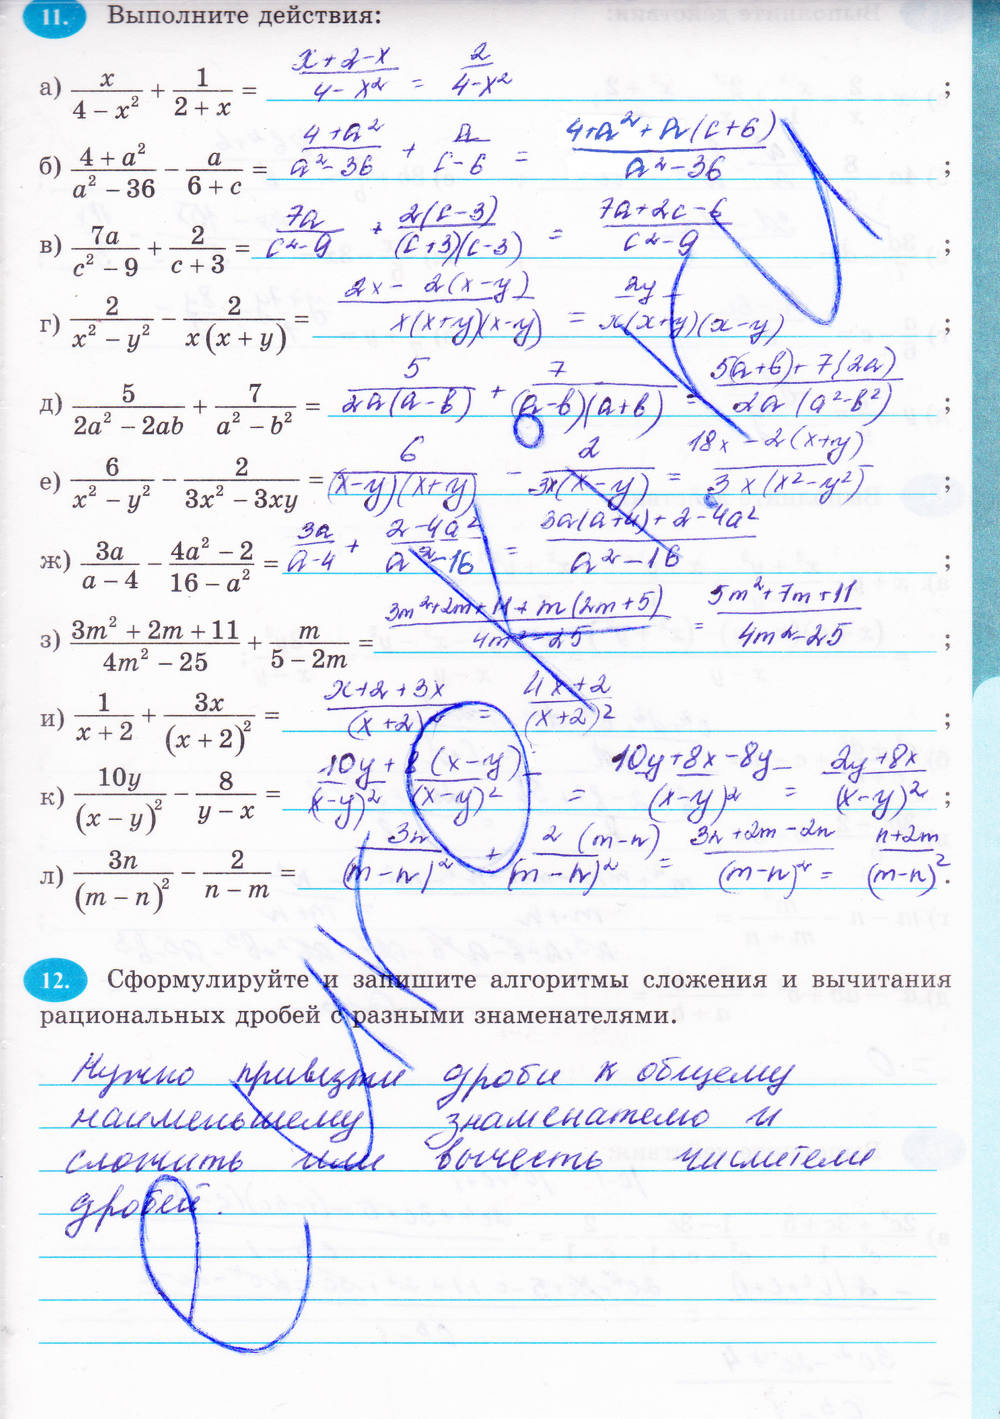 11. Выполните действия:
а) x/(4 − x²) + 1/(2 + x) = (x+2−x)/(4−x²) = 2/(4−x²) ;
б) (4 + a²)/(a² − 36) − a/(6 + c) = (4+a²)/(a²−36) + a/(c−6) = (4+a²+a(c+6))/(a²−36) ;
в) 7a/(c² − 9) + 2/(c + 3) = 7a/(c²−9) + 2(c−3)/((c+3)(c−3)) = (7a+2c−6)/(c²−9) ;
г) 2/(x² − y²) − 2/(x(x + y)) = (2x − 2(x−y))/(x(x+y)(x−y)) = 2y/(x(x+y)(x−y)) ;
д) 5/(2a² − 2ab) + 7/(a² − b²) = 5/(2a(a−b)) + 7/((a−b)(a+b)) = (5(a+b)+7(2a))/(2a(a²−b²)) ;
е) 6/(x² − y²) − 2/(3x² − 3xy) = 6/((x−y)(x+y)) − 2/(3x(x−y)) = (18x−2(x+y))/(3x(x²−y²)) ;
ж) 3a/(a − 4) − (4a² − 2)/(16 − a²) = 3a/(a−4) + (2−4a²)/(a²−16) = (3a(a+4)+2−4a²)/(a²−16) ;
з) (3m² + 2m + 11)/(4m² − 25) + m/(5 − 2m) = (3m²+2m+11+m(2m+5))/(4m²−25) = (5m²+7m+11)/(4m²−25) ;
и) 1/(x + 2) + 3x/(x + 2)² = (x+2+3x)/(x+2)² = (4x+2)/(x+2)² ;
к) 10y/(x − y)² − 8/(y − x) = (10y+8(x−y))/((x−y)² (x−y)²) = (10y+8x−8y)/(x−y)² = (2y+8x)/(x−y)² ;
л) 3n/(m − n)² − 2/(n − m) = 3n/(m−n)² + 2(m−n)/(m−n)² = (3n+2m−2n)/(m−n)² = (n+2m)/(m−n)² .
12. Сформулируйте и запишите алгоритмы сложения и вычитания
рациональных дробей с разными знаменателями.
Нужно привезти дроби к общему
наименьшему знаменателю и
сложить или вычесть числители
дробей.